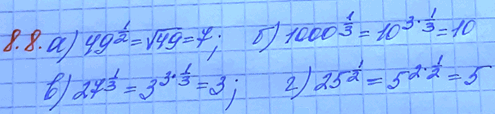 8.8. а) 49^{\frac{1}{2}} = \sqrt{49} = 7; б) 1000^{\frac{1}{3}} = 10^{3 \cdot \frac{1}{3}} = 10
в) 27^{\frac{1}{3}} = 3^{3 \cdot \frac{1}{3}} = 3; г) 25^{\frac{1}{2}} = 5^{2 \cdot \frac{1}{2}} = 5